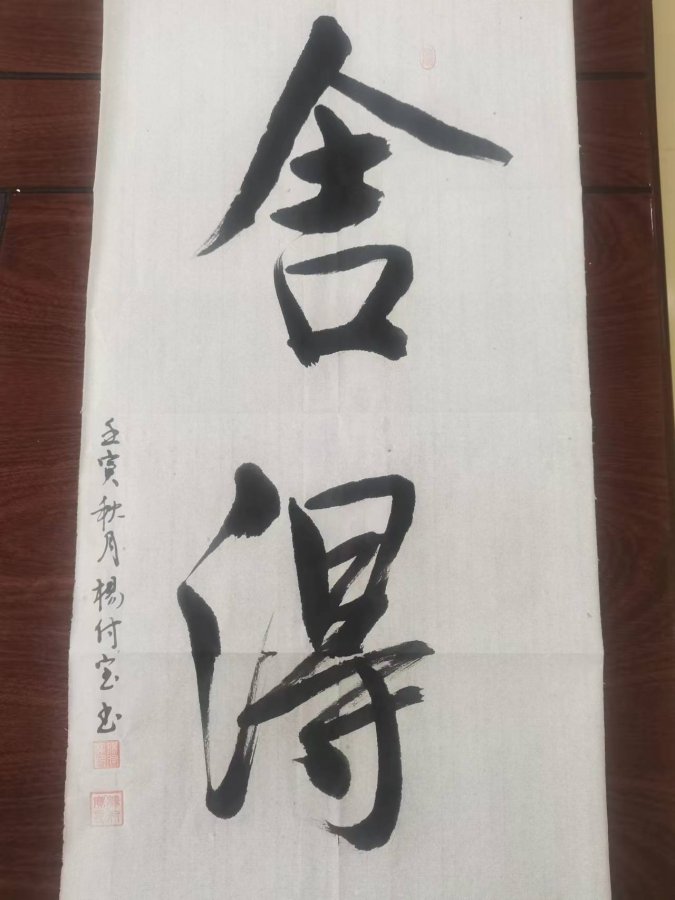 舍得
壬寅秋月楊付宝书